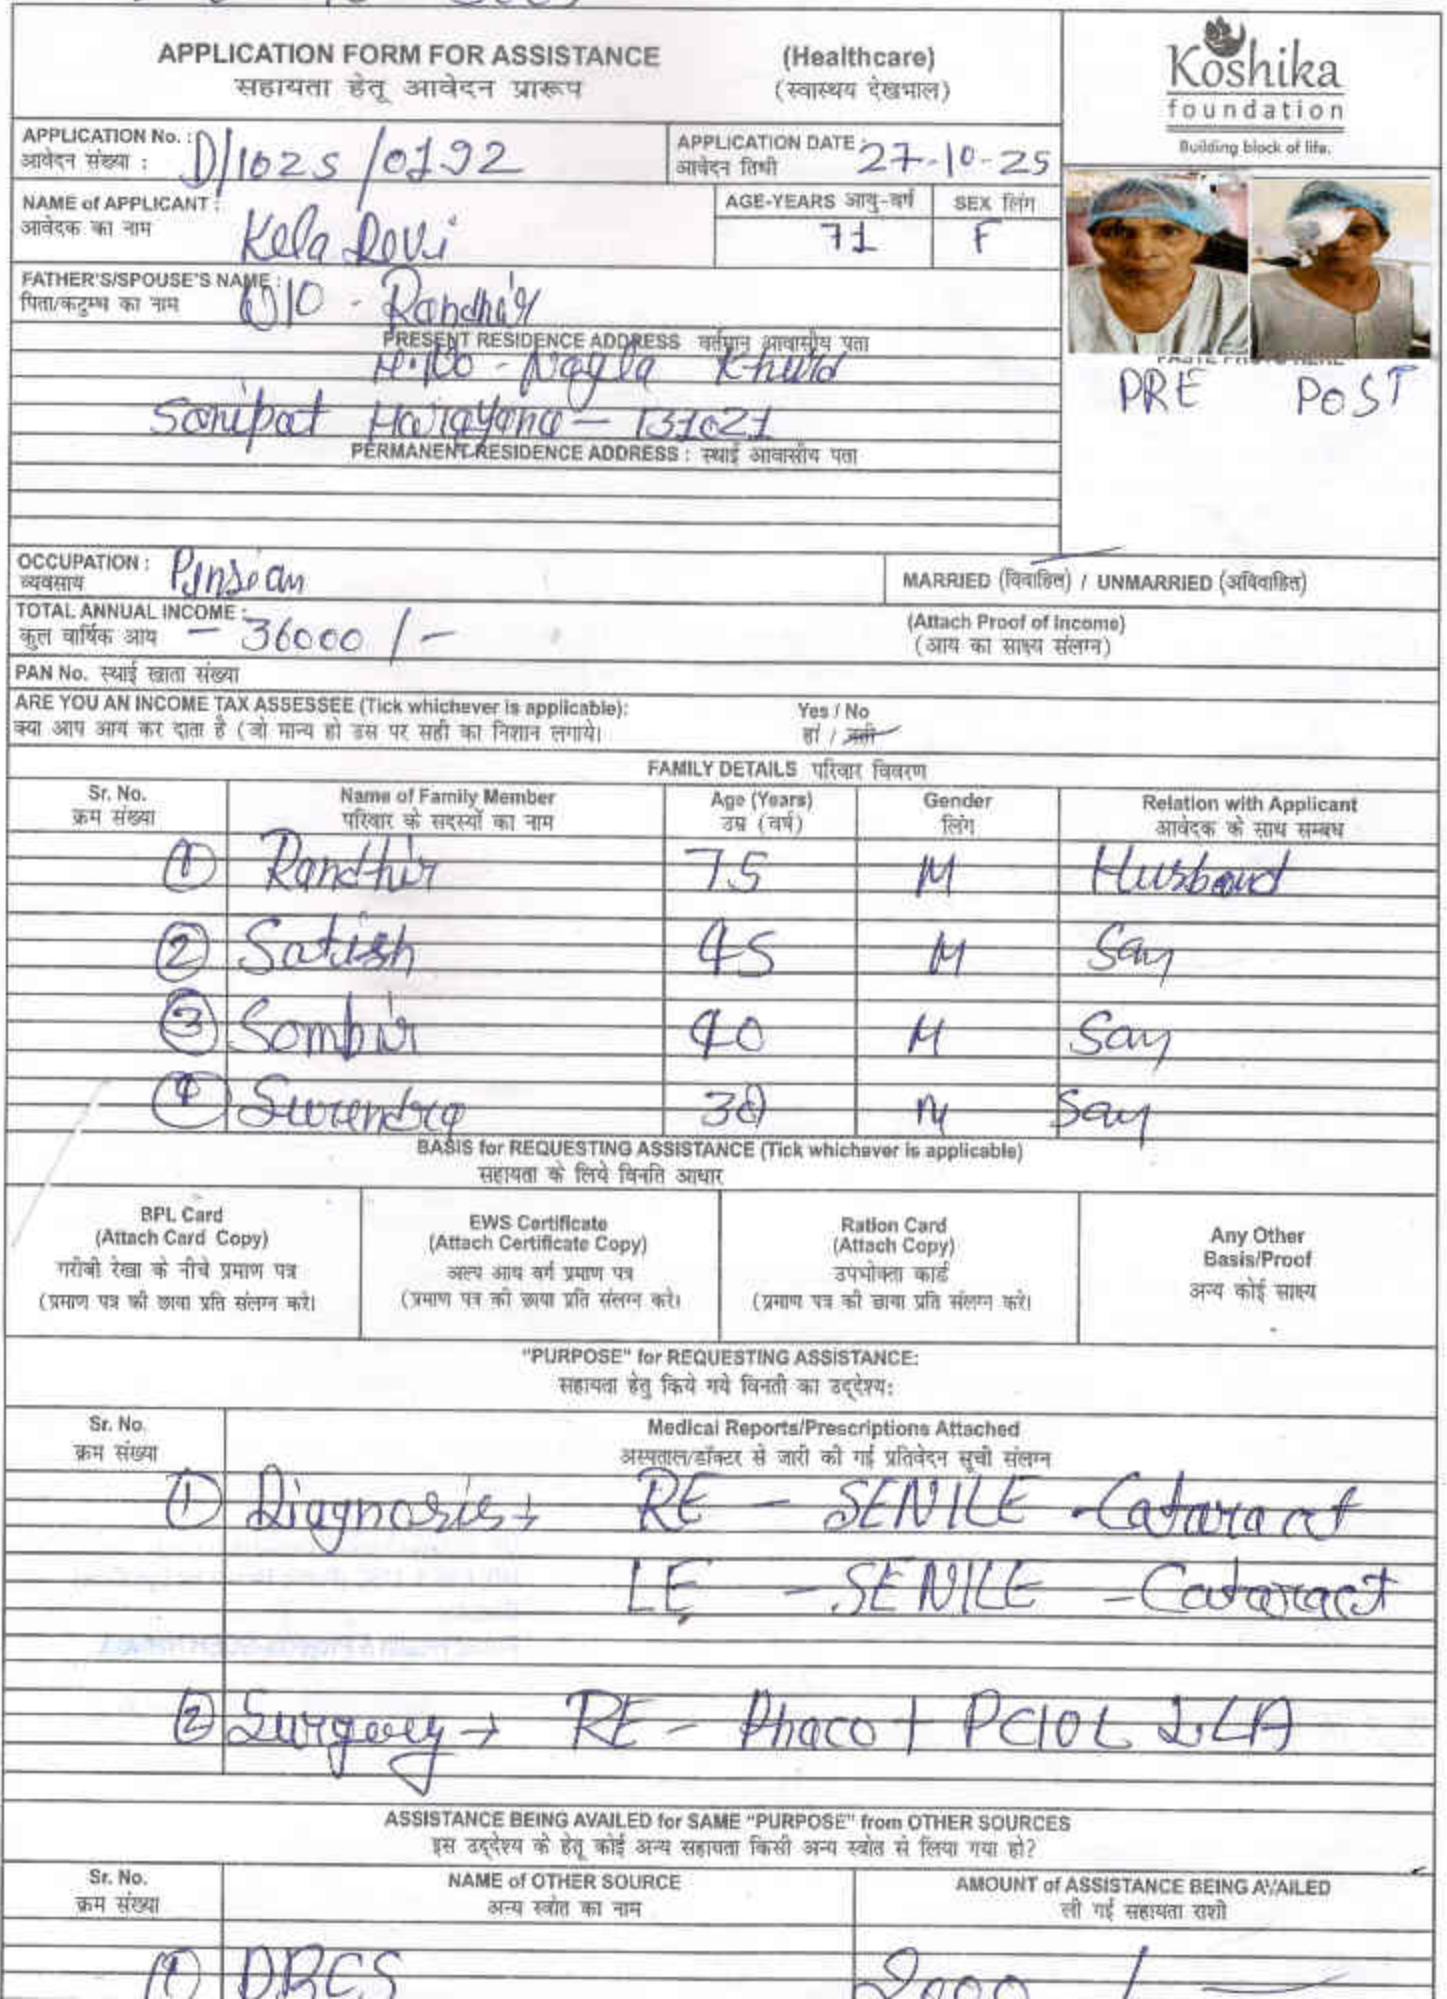 APPLICATION FORM FOR ASSISTANCE (Healthcare)
सहायता हेतू आवेदन प्रारूप (स्वास्थय देखभाल)
Koshika
foundation
Building block of life.
APPLICATION No. : D/1025/0192
आवेदन संख्या :
APPLICATION DATE : 27-10-25
आवेदन तिथी
NAME of APPLICANT : Kela Devi
आवेदक का नाम
AGE-YEARS आयु-वर्ष 71
SEX लिंग F
FATHER'S/SPOUSE'S NAME : W/O - Randhir
पिता/कटुम्ब का नाम
PRESENT RESIDENCE ADDRESS वर्तमान आवासीय पता
H.No - Nagla Khurd
Sonipat Harayana - 131021
PERMANENT RESIDENCE ADDRESS : स्थाई आवासीय पता
PRE POST
OCCUPATION : Pinsian
व्यवसाय
MARRIED (विवाहित) / UNMARRIED (अविवाहित)
TOTAL ANNUAL INCOME : - 36000/-
कुल वार्षिक आय
(Attach Proof of Income)
(आय का साक्ष्य संलग्न)
PAN No. स्थाई खाता संख्या
ARE YOU AN INCOME TAX ASSESSEE (Tick whichever is applicable): Yes / No
क्या आप आय कर दाता है (जो मान्य हो उस पर सही का निशान लगाये। हां / नही
FAMILY DETAILS परिवार विवरण
Sr. No. Name of Family Member Age (Years) Gender Relation with Applicant
क्रम संख्या परिवार के सदस्यों का नाम उम्र (वर्ष) लिंग आवेदक के साथ सम्बध
① Randhir 75 M Husband
② Satish 45 M Say
③ Sombir 40 M Say
④ Surendra 38 M Say
BASIS for REQUESTING ASSISTANCE (Tick whichever is applicable)
सहायता के लिये विनति आधार
BPL Card
(Attach Card Copy)
गरीबी रेखा के नीचे प्रमाण पत्र
(प्रमाण पत्र की छाया प्रति संलग्न करे।
EWS Certificate
(Attach Certificate Copy)
अल्प आय वर्ग प्रमाण पत्र
(प्रमाण पत्र की छाया प्रति संलग्न करे।
Ration Card
(Attach Copy)
उपभोक्ता कार्ड
(प्रमाण पत्र की छाया प्रति संलग्न करे।
Any Other
Basis/Proof
अन्य कोई साक्ष्य
"PURPOSE" for REQUESTING ASSISTANCE:
सहायता हेतु किये गये विनती का उद्देश्य:
Sr. No. Medical Reports/Prescriptions Attached
क्रम संख्या अस्पताल/डॉक्टर से जारी की गई प्रतिवेदन सूची संलग्न
① Diagnosis → RE - SENILE - Cataract
LE - SENILE - Cataract
② Surgery → RE - Phaco + PCIOL
ASSISTANCE BEING AVAILED for SAME "PURPOSE" from OTHER SOURCES
इस उद्देश्य के हेतू कोई अन्य सहायता किसी अन्य स्त्रोत से लिया गया हो?
Sr. No. NAME of OTHER SOURCE AMOUNT of ASSISTANCE BEING AVAILED
क्रम संख्या अन्य स्त्रोत का नाम ली गई सहायता राशी
① DBCS 2000/-